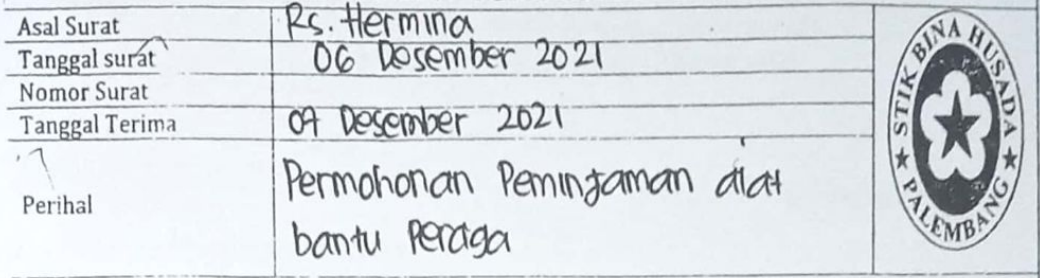 Asal Surat Rs. Hermina
Tanggal surat 06 Desember 2021
Nomor Surat
Tanggal Terima 07 Desember 2021
Perihal Permohonan Peminjaman alat
bantu Peraga
STIK BINA HUSADA
PALEMBANG